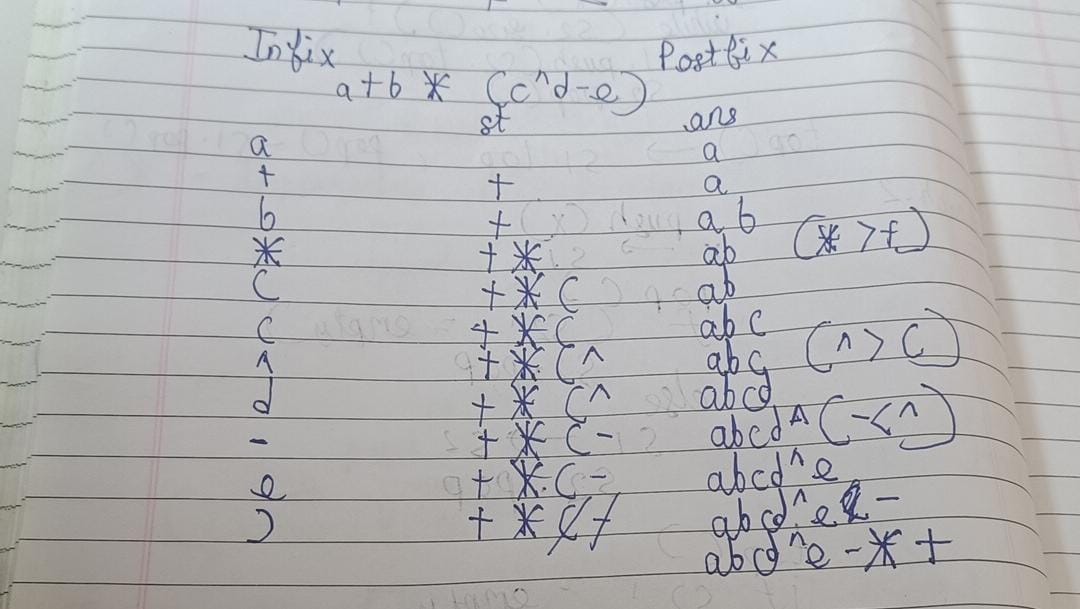 Infix Postfix
a+b * (c^d-e)
st ans
a a
+ + a
b + ab
* + * ab (* > +)
( + * ( ab
c + * ( abc
^ + * (^ abc (^ > ()
d + * (^ abcd
- + * (- abcd^ (- < ^)
e + * (- abcd^e
) + * (- abcd^e -
abcd^e - * +